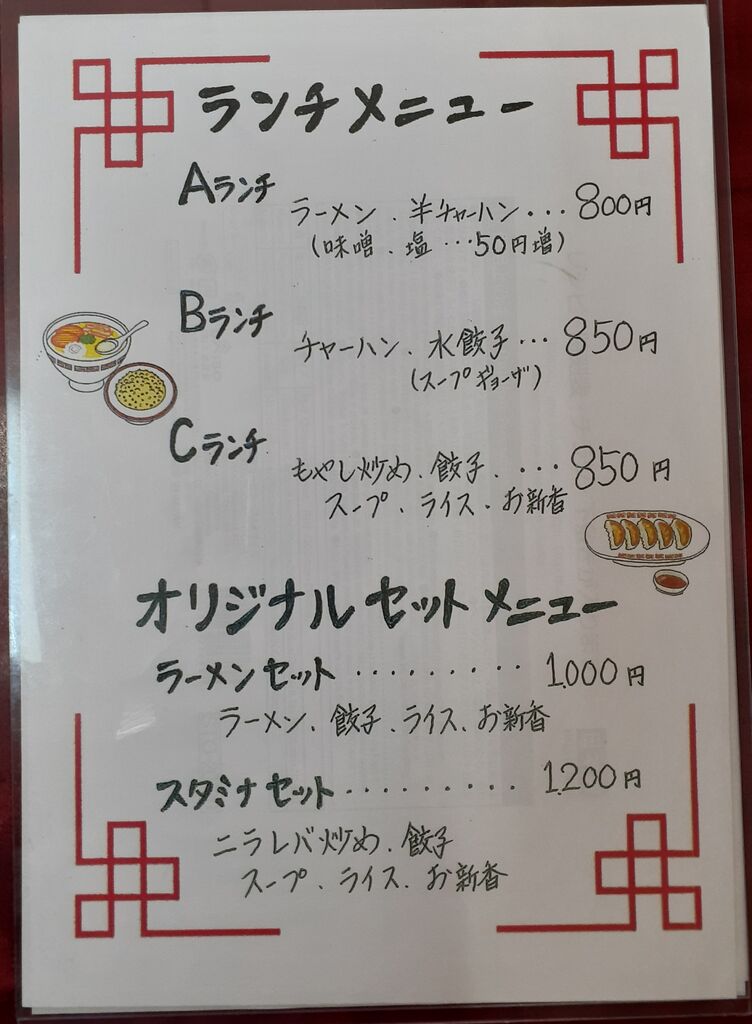 ランチメニュー
Aランチ
ラーメン、半チャーハン・・・800円
(味噌、塩・・・50円増)
Bランチ
チャーハン、水餃子・・・850円
(スープギョーザ)
Cランチ
もやし炒め、餃子、・・・850円
スープ、ライス、お新香
オリジナルセットメニュー
ラーメンセット・・・・・・・・・1,000円
ラーメン、餃子、ライス、お新香
スタミナセット・・・・・・・・・1,200円
ニラレバ炒め、餃子
スープ、ライス、お新香